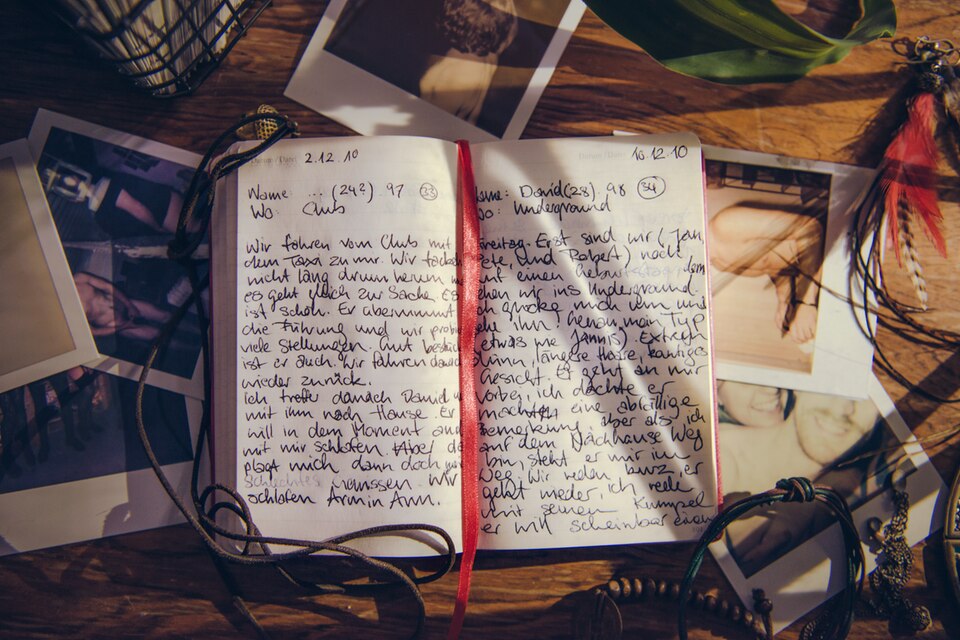 Datum / Date 2.12.10
Name: ... (24?) 97 33
Wo: Club
Wir fahren vom Club mit
dem Taxi zu mir. Wir
nicht lang drum herum
es geht gleich zur Sache. Es
ist schön. Er übernimmt
die Führung und wir
viele Stellungen. Gut
ist er auch. Wir fahren
wieder zurück.
Ich treffe danach David
mit ihm nach Hause. Er
will in dem Moment
mit mir schlafen.
plagt mich dann doch
schlechtes Wir
schlafen Arm in Arm.
Datum / Date 16.12.10
Name: David (28) 98 34
Wo: Underground
Freitag. Erst sind wir (Jan,
und Robert) noch
auf einen Geburtstag, dem
gehen wir ins Underground.
noch rum und
sehe ihn. Genau man Typ
Extrem
dünn, lässige Hose, kantiges
Gesicht. Er geht an mir
vorbei, ich dachte er
machte eine abfällige
Bemerkung, aber als ich
auf dem Nachhause Weg
bin, steht er mir im
Weg. Wir reden kurz, er
geht wieder, ich rede
mit seinem Kumpel
er will scheinbar